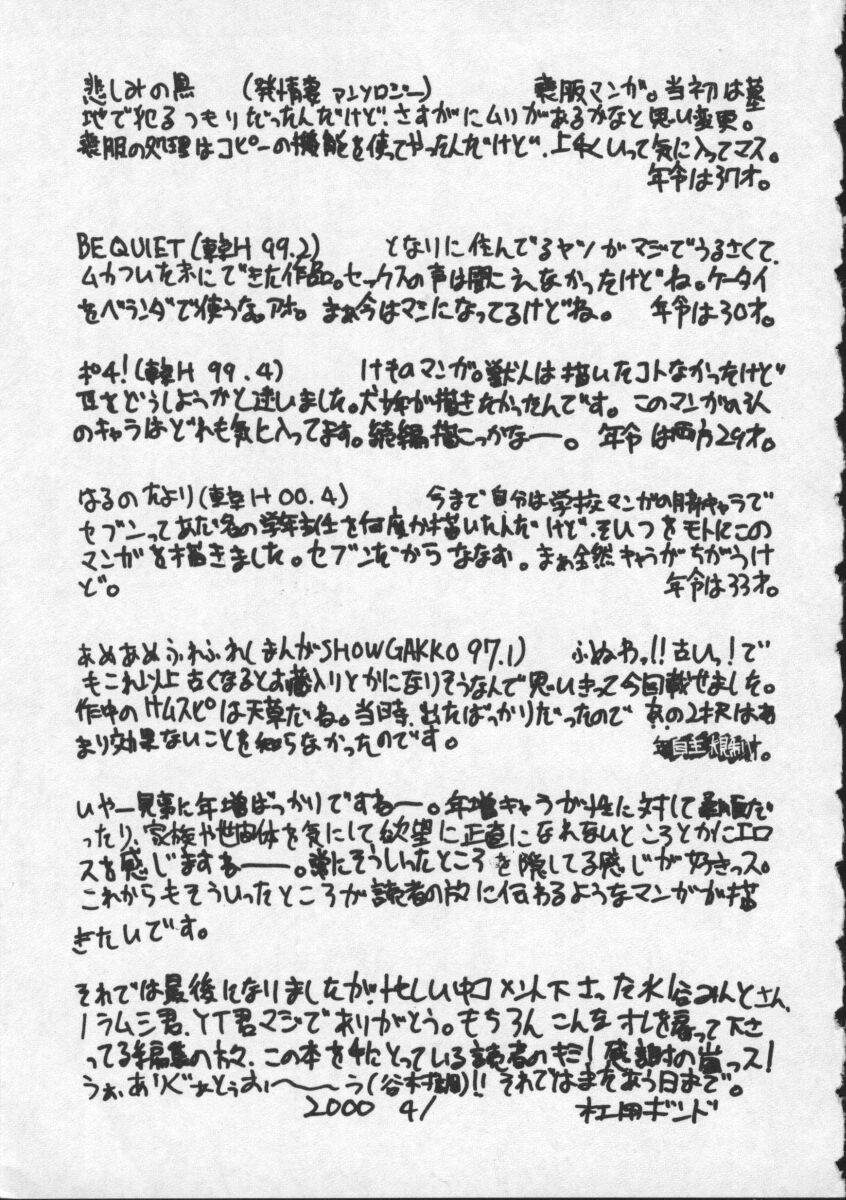 悲しみの黒　(発情妻 アンソロジー)　喪服マンガ。当初は墓
地で犯るつもりだったんだけど、さすがにムリがあるかなと思い変更。
喪服の処理はコピーの機能を使ってやったんだけど、上手くいって気に入ってマス。
年令は37才。
BE QUIET (華H 99.2)　となりに住んでるヤツがマジでうるさくて、
ムカついた末にできた作品。セックスの声は聞こえなかったけどね。ケータイ
をベランダで使うな。アホ。まぁ今はマシになってるけどね。　年令は30才。
ポチ! (華H 99.4)　けものマンガ。獣人は描いたコトなかったけど
耳をどうしようかと迷いました。犬が描きたかったんです。このマンガの3人
のキャラはどれも気に入ってます。続編描こっかなー。年令は両方29才。
はるのたより (華H 00.4)　今まで自分は学校マンガの脇キャラで
セブンってあだ名の学年主任を何度か描いたんだけど、そいつをモトにこの
マンガを描きました。セブンだからななお。まぁ全然キャラがちがうけ
ど。　年令は33才。
あめあめふれふれ (まんがSHOWGAKKO 97.1)　ふぬわっ!!古いっ!で
もこれ以上古くなるとお蔵入りとかになりそうなんで思いきって今回載せました。
作中のサムスピは天草だね。当時、出たばっかりだったので、あの2択はあ
まり効果ないことを知らなかったのです。　年自主規制才。
いやー見事に年増ばっかりですねー。年増キャラが性に対して
ったり、家族や世間体を気にして欲望に正直になれないところとかにエロ
スを感じますねー。常にそういったところを隠してる感じが好きっス。
これからもそういったところが読者の方々に伝わるようなマンガが描
きたいです。
それでは最後になりましたが、忙しい中コメント下さった水谷みんとさん、
ラムニ君、YT君マジでありがとう。もちろんこんなオレを雇って下さ
ってる編集の方々、この本を手にとっている読者のキミ!感謝の嵐っス!
うぉ、あ゛りがとぅおぉ〜う(谷村調)!!それではまたあう日まで。
2000 4/　杜用ボンド